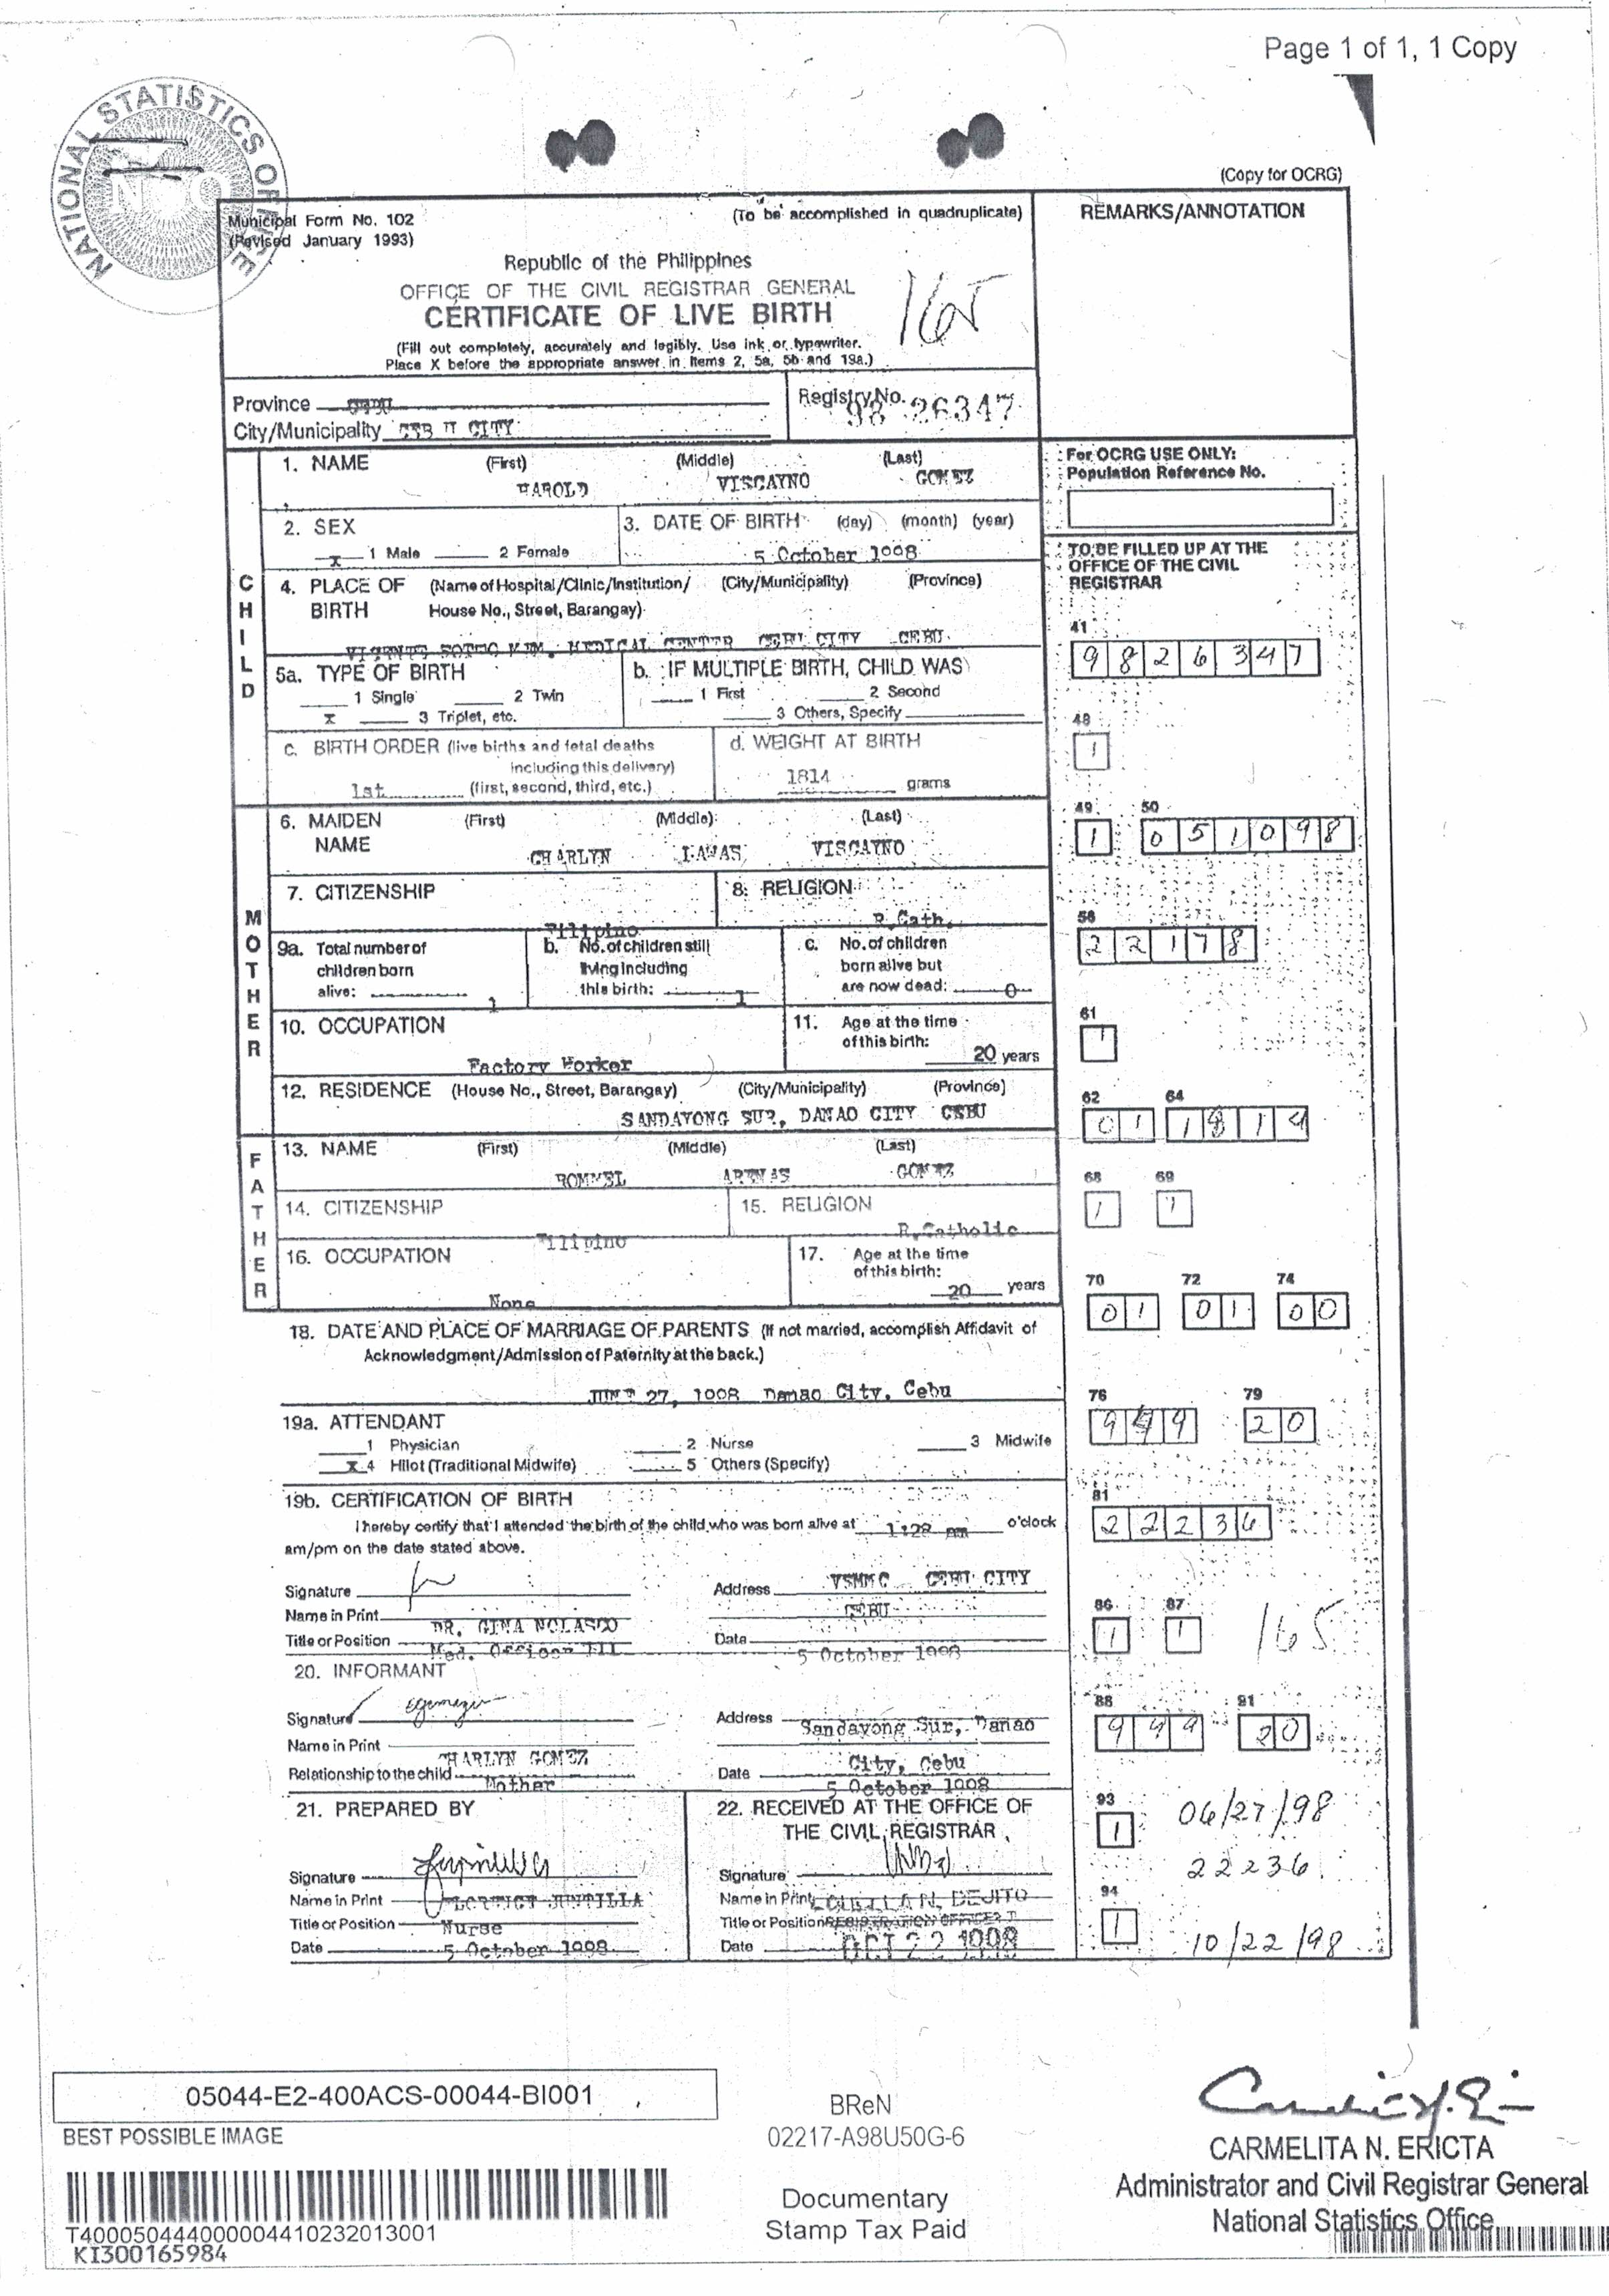 Page 1 of 1, 1 Copy
NATIONAL STATISTICS OFFICE
NSO
(Copy for OCRG)
Municipal Form No. 102
(To be accomplished in quadruplicate)
REMARKS/ANNOTATION
(Revised January 1993)
Republic of the Philippines
OFFICE OF THE CIVIL REGISTRAR GENERAL
CERTIFICATE OF LIVE BIRTH
165
(Fill out completely, accurately and legibly. Use ink or typewriter.
Place X before the appropriate answer in Items 2, 5a, 5b and 19a.)
Province CEBU
Registry No. 98 26347
City/Municipality CEB U CITY
CHILD
1. NAME (First) (Middle) (Last)
HAROLD VISCAYNO GOMEZ
For OCRG USE ONLY:
Population Reference No.
2. SEX
X 1 Male 2 Female
3. DATE OF BIRTH (day) (month) (year)
5 October 1998
TO BE FILLED UP AT THE
OFFICE OF THE CIVIL
REGISTRAR
4. PLACE OF BIRTH (Name of Hospital/Clinic/Institution/ (City/Municipality) (Province)
House No., Street, Barangay)
VICENTE SOTTO MEM. MEDICAL CENTER CEBU CITY CEBU
41
9 8 2 6 3 4 7
5a. TYPE OF BIRTH
1 Single 2 Twin
X 3 Triplet, etc.
b. IF MULTIPLE BIRTH, CHILD WAS
1 First 2 Second
3 Others, Specify
48
1
c. BIRTH ORDER (live births and fetal deaths
including this delivery)
1st (first, second, third, etc.)
d. WEIGHT AT BIRTH
1814 grams
MOTHER
6. MAIDEN NAME (First) (Middle) (Last)
CHARLYN LAWAS VISCAYNO
49 50
1 0 5 1 0 9 8
7. CITIZENSHIP
Filipino
8. RELIGION
R. Cath.
56
2 2 1 7 8
9a. Total number of
children born
alive: 1
b. No. of children still
living including
this birth: 1
c. No. of children
born alive but
are now dead: 0
10. OCCUPATION
Factory Worker
11. Age at the time
of this birth:
20 years
61
1
12. RESIDENCE (House No., Street, Barangay) (City/Municipality) (Province)
SANDAYONG SUR, DANAO CITY CEBU
62 64
0 1 1 8 1 4
FATHER
13. NAME (First) (Middle) (Last)
ROMMEL ARENAS GOMEZ
14. CITIZENSHIP
Filipino
15. RELIGION
R. Catholic
68 69
1 1
16. OCCUPATION
None
17. Age at the time
of this birth:
20 years
70 72 74
0 1 0 1 0 0
18. DATE AND PLACE OF MARRIAGE OF PARENTS (If not married, accomplish Affidavit of
Acknowledgment/Admission of Paternity at the back.)
JUNE 27, 1998 Danao City, Cebu
76 79
9 9 9 2 0
19a. ATTENDANT
1 Physician 2 Nurse 3 Midwife
X 4 Hilot (Traditional Midwife) 5 Others (Specify)
19b. CERTIFICATION OF BIRTH
I hereby certify that I attended the birth of the child who was born alive at 1:28 o'clock
am/pm on the date stated above.
81
2 2 2 3 6
Signature
Address VSMMC CEBU CITY
CEBU
Name in Print DR. GINA NOLASCO
Title or Position Med. Officer III
Date 5 October 1998
86 87
1 1
165
20. INFORMANT
Signature
Address Sandayong Sur, Danao
City, Cebu
Name in Print CHARLYN GOMEZ
Relationship to the child Mother
Date 5 October 1998
88 91
9 9 9 2 0
21. PREPARED BY
22. RECEIVED AT THE OFFICE OF
THE CIVIL REGISTRAR
93
1
06/27/98
22236
Signature
Signature
Name in Print
Name in Print DEJITO
Title or Position Nurse
Title or Position REGISTRATION OFFICER I
Date 5 October 1998
Date OCT 22 1998
94
1
10/22/98
05044-E2-400ACS-00044-BI001
BEST POSSIBLE IMAGE
T400050444000004410232013001
KI300165984
BReN
02217-A98U50G-6
Documentary
Stamp Tax Paid
CARMELITA N. ERICTA
Administrator and Civil Registrar General
National Statistics Office